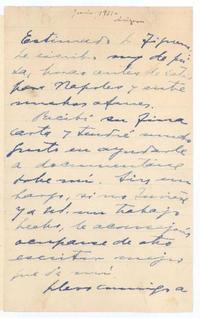 Junio 1951
Estimado Sr Figueroa
le escribo muy de pri-
sa, horas antes de salir
para Napoles y entre
muchos afanes.
Recibí su fina
carta y tendré mucho
gusto en ayudarle
a documentarse
sobre mí. Sin em-
bargo, si no tuviera
ya Ud. un trabajo
hecho, le aconsejaría
ocuparse de otro
escritor mejor
que de mí.
Llevo conmigo a